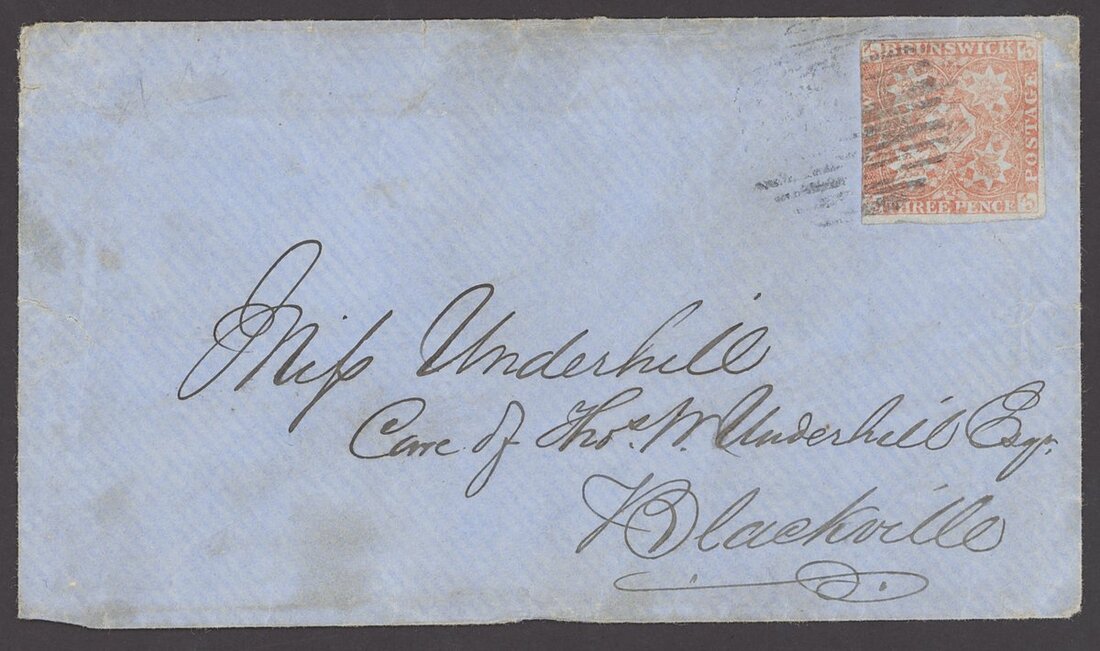 BRUNSWICK
POSTAGE
THREE PENCE
Miss Underhill
Care of Thos. W. Underhill Esqr.
Blackville